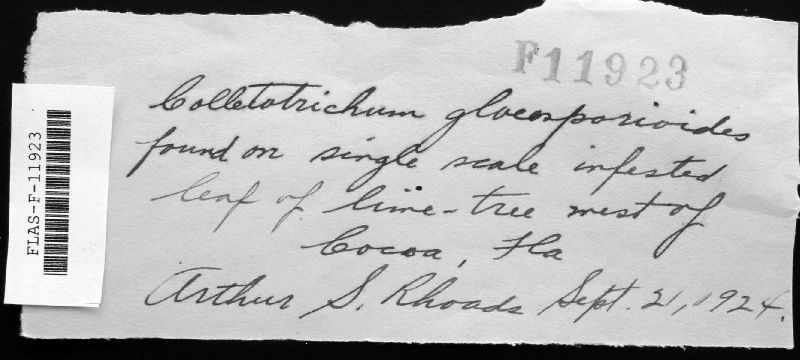 F11923
Colletotrichum gloeosporioides
found on single scale infested
leaf of lime-tree west of
Cocoa, Fla
Arthur S. Rhoads Sept. 21, 1924.
FLAS-F-11923